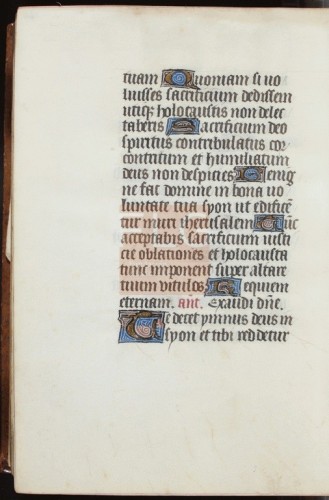 tuam Quoniam si uo
luisses sacrificium dedissem
utiq; holocaustis non delec
taberis Sacrificium deo
spiritus contribulatus cor
contritum et humiliatum
deus non despicies Benig
ne fac domine in bona uo
luntate tua syon ut edifice
tur muri iherusalem Tuc
acceptabis sacrificium iusti
cie oblationes et holocausta
tunc imponent super altare
tuum uitulos Requiem
eternam. ant. Exaudi dne.
Te decet ymnus deus in
syon et tibi reddetur